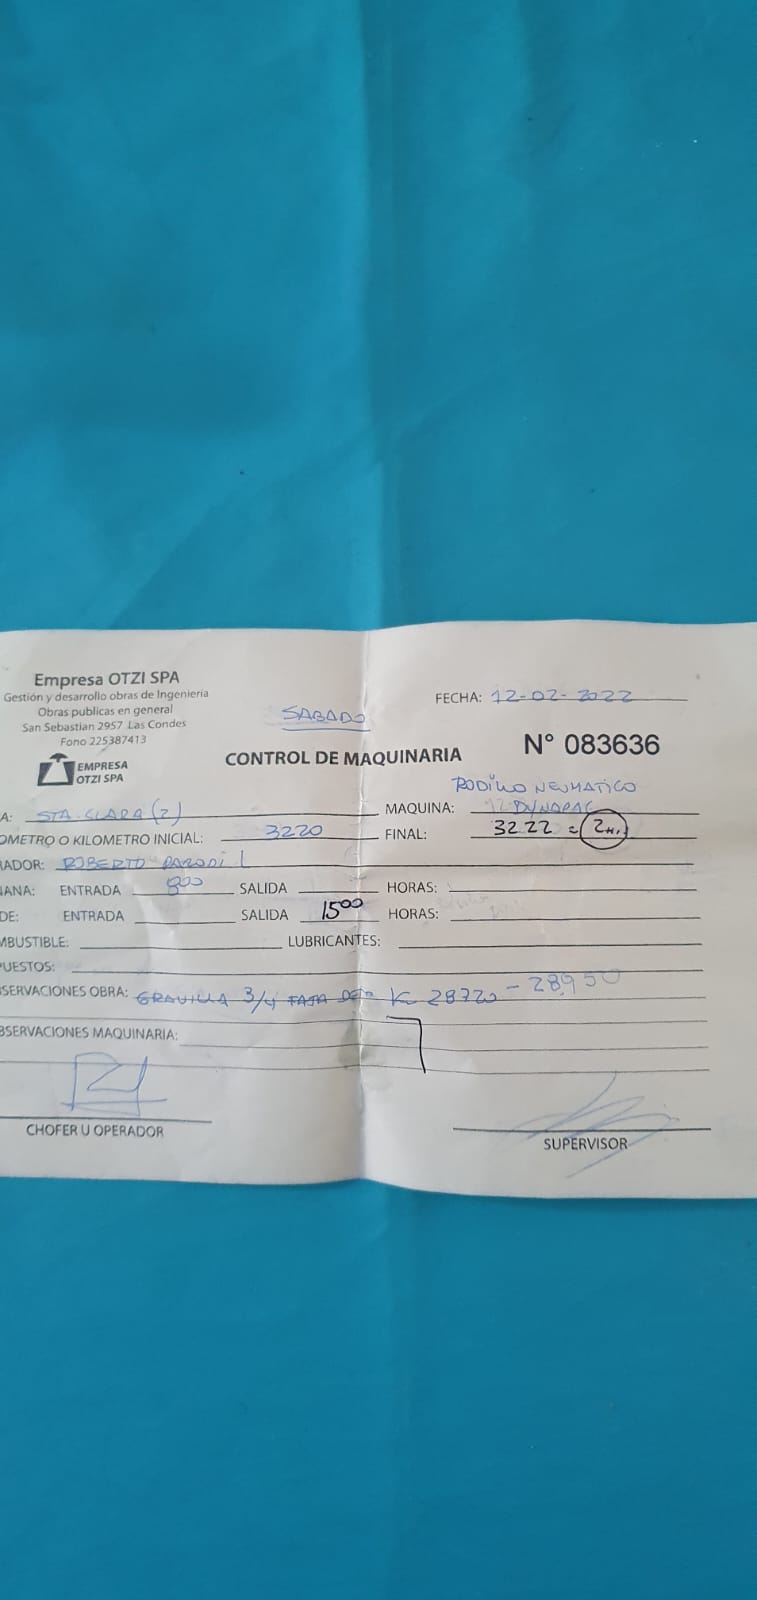 Empresa OTZI SPA
Gestión y desarrollo obras de Ingenieria
Obras publicas en general
San Sebastian 2957 Las Condes
Fono 225387413
EMPRESA
OTZI SPA
SABADO
FECHA: 12-02-2022
CONTROL DE MAQUINARIA
N° 083636
RODILLO NEUMATICO
A: STA. CLARA (2) MAQUINA: DYNAPAC
OMETRO O KILOMETRO INICIAL: 3220 FINAL: 3222 = 2H.
RADOR: ROBERTO PARODI L
ÑANA: ENTRADA 800 SALIDA HORAS:
DE: ENTRADA SALIDA 1500 HORAS:
MBUSTIBLE: LUBRICANTES:
PUESTOS:
SERVACIONES OBRA: GRAVILLA 3/4 FAJA K 28720 - 28950
BSERVACIONES MAQUINARIA:
CHOFER U OPERADOR
SUPERVISOR